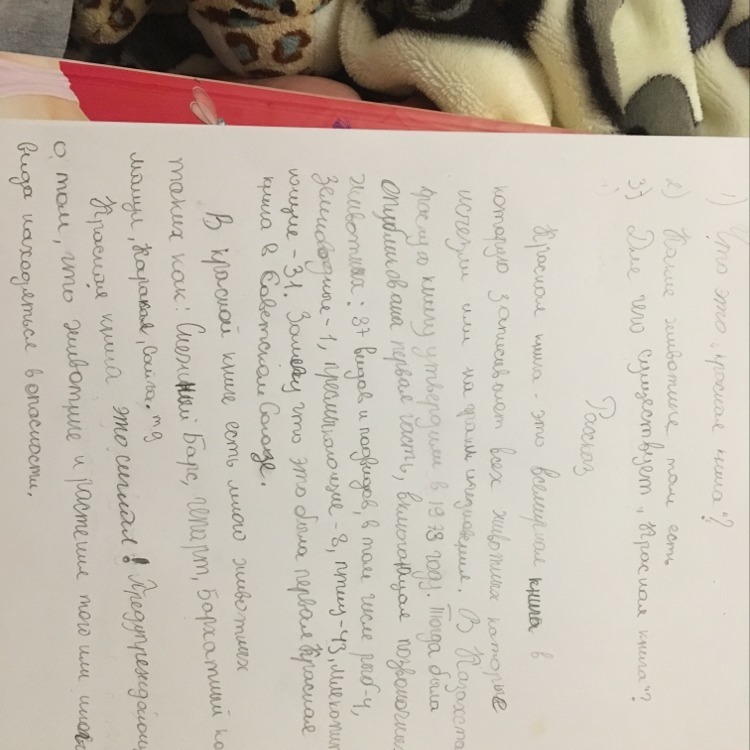 1) Что это „красная книга"?
2) Какие животные там есть
3) Для чего существует „Красная книга"?
Рассказ
Красная книга - это всемирная книга в
которую записывают всех животных которые
исчезли или на грани исчезновения. В Казахста
красную книгу утвердили в 1978 году. Тогда была
опубликована первая часть, включающая позвоночных
животных: 87 видов и подвидов, в том числе рыб-4,
земноводные-1, пресмыкающие-8, птиц-43, млекопит
ющие-31. Замечу что это была первая Красная
книга в Советском Союзе.
В красной книге есть много животных
таких как: Снежный Барс, гепарт, Бархатный ко
манул, Каракал, Сайга. тд
Красная книга это сигнал! Предупреждающ
о том, что животные и растение того или иного
вида находяться в опасности.